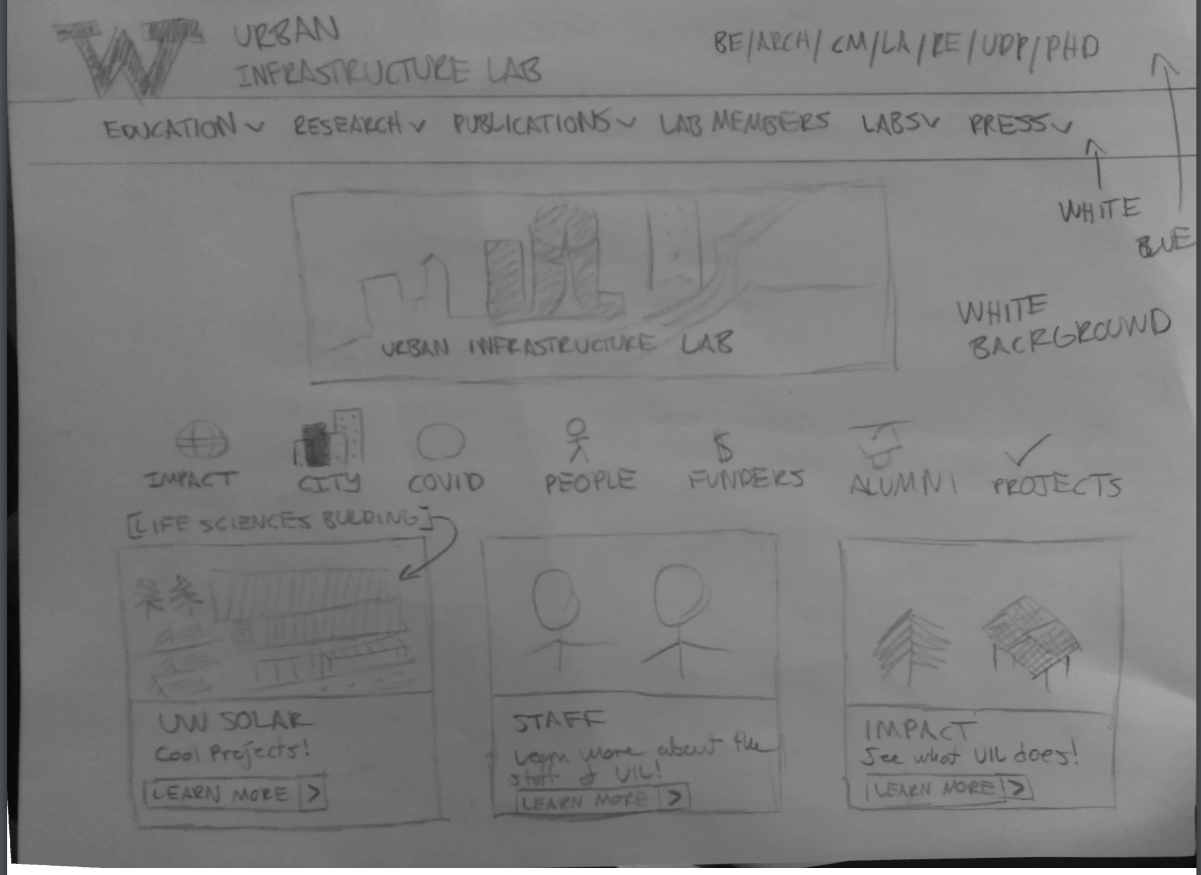 W URBAN
INFRASTRUCTURE LAB
BE/ARCH/CM/LA/RE/UDP/PHD
EDUCATION RESEARCH PUBLICATIONS LAB MEMBERS LABS PRESS
WHITE
BLUE
WHITE
BACKGROUND
URBAN INFRASTRUCTURE LAB
$
IMPACT CITY COVID PEOPLE FUNDERS ALUMNI PROJECTS
[LIFE SCIENCES BULDING]
UW SOLAR
Cool Projects!
LEARN MORE >
STAFF
Learn more about the
staff of UIL!
LEARN MORE >
IMPACT
See what UIL does!
LEARN MORE >